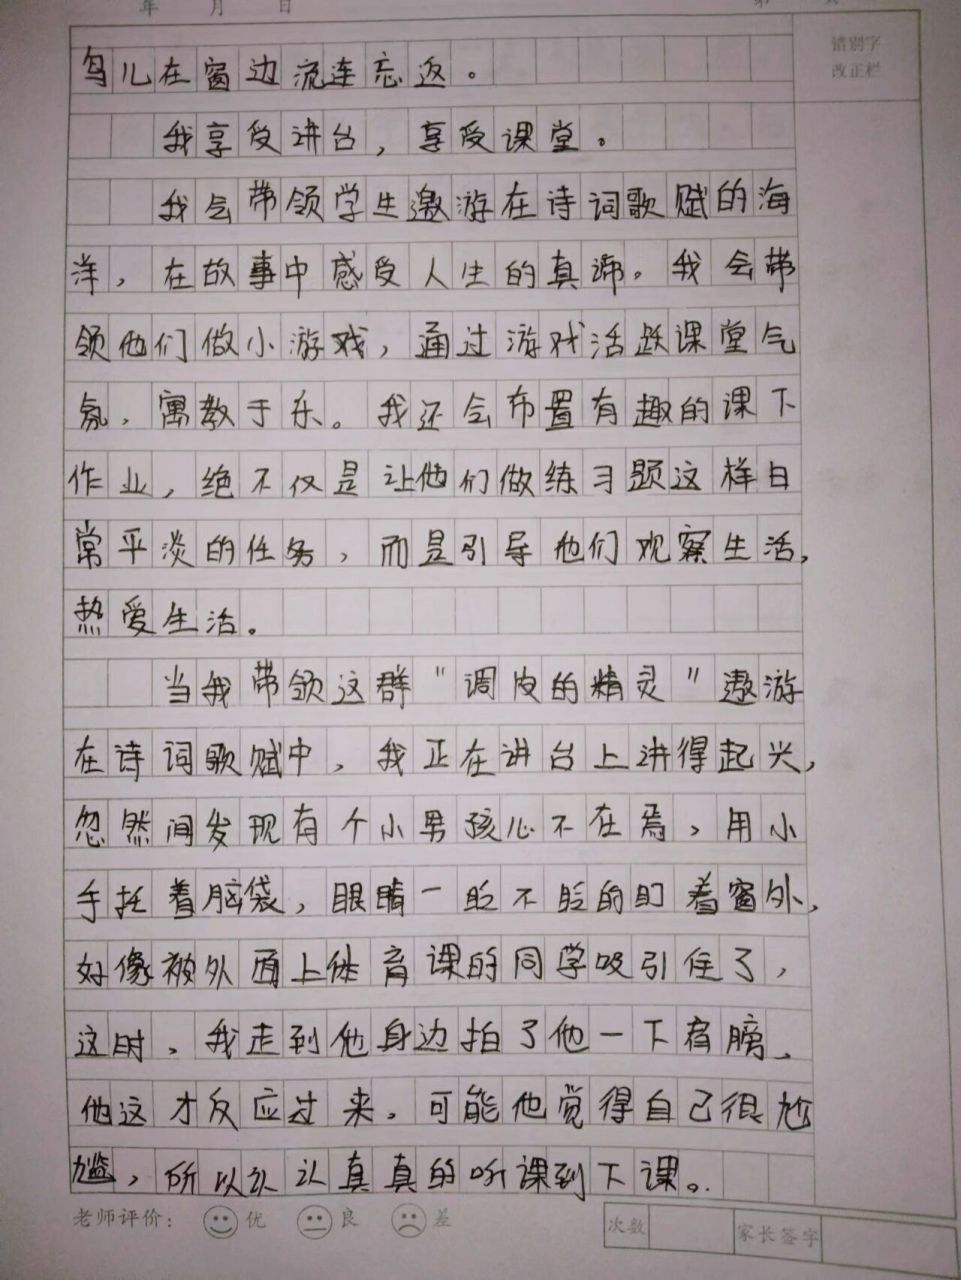 年 月 日 第
错别字
改正栏
鸟儿在窗边流连忘返。
我享受讲台，享受课堂。
我会带领学生邀游在诗词歌赋的海
洋，在故事中感受人生的真谛。我会带
领他们做小游戏，通过游戏活跃课堂气
氛，寓教于乐。我还会布置有趣的课下
作业，绝不仅是让他们做练习题这样日
常平淡的任务，而是引导他们观察生活，
热爱生活。
当我带领这群“调皮的精灵”遨游
在诗词歌赋中，我正在讲台上讲得起兴，
忽然间发现有个小男孩心不在焉，用小
手托着脑袋，眼睛一眨不眨的盯着窗外，
好像被外面上体育课的同学吸引住了，
这时，我走到他身边拍了他一下肩膀，
他这才反应过来。可能他觉得自己很尴
尬，所以认认真真的听课到下课。
老师评价： 优 良 差 次数 家长签字